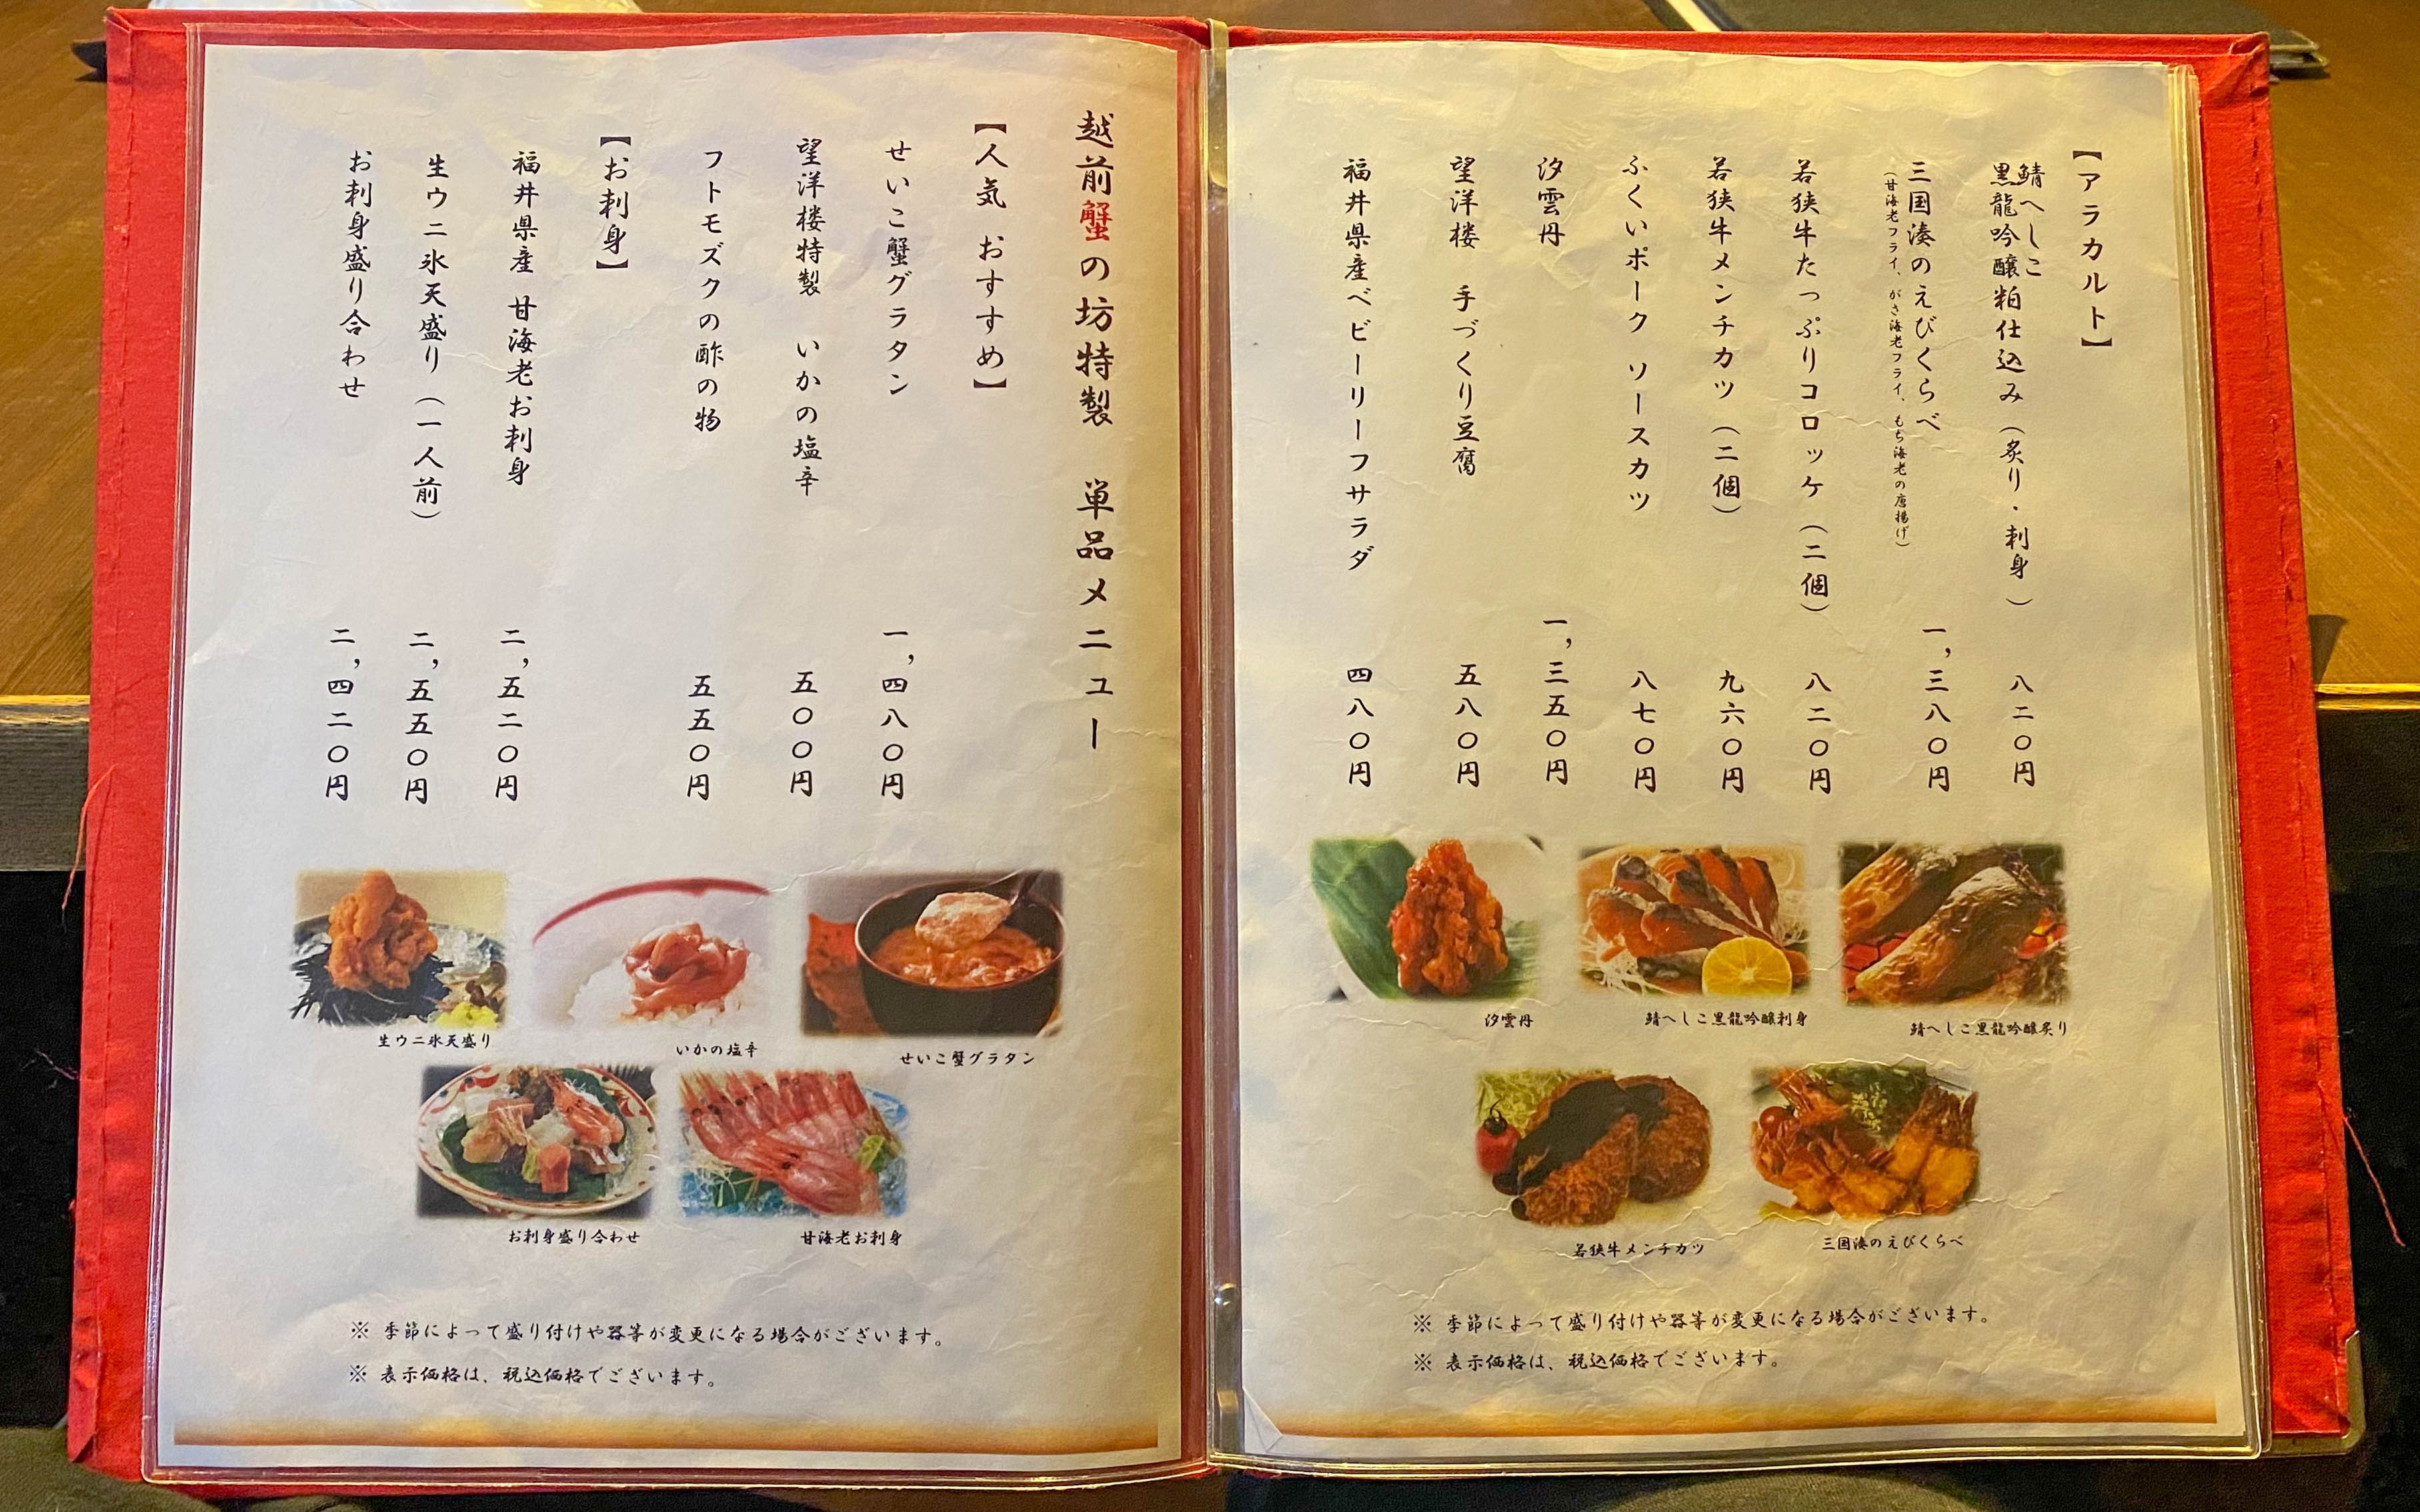 【アラカルト】
鯖へしこ
黒龍吟醸粕仕込み（炙り・刺身）　八二〇円
三国湊のえびくらべ　一，三八〇円
（甘海老フライ、がさ海老フライ、もち海老の唐揚げ）
若狭牛たっぷりコロッケ（二個）　八二〇円
若狭牛メンチカツ（二個）　九六〇円
ふくいポーク　ソースカツ　八七〇円
汐雲丹　一，三五〇円
望洋楼　手づくり豆腐　五八〇円
福井県産ベビーリーフサラダ　四八〇円
鯖へしこ黒龍吟醸炙り
鯖へしこ黒龍吟醸刺身
汐雲丹
三国湊のえびくらべ
若狭牛メンチカツ
※ 季節によって盛り付けや器等が変更になる場合がございます。
※ 表示価格は、税込価格でございます。
越前蟹の坊特製　単品メニュー
【人気 おすすめ】
せいこ蟹グラタン　一，四八〇円
望洋楼特製　いかの塩辛　五〇〇円
フトモズクの酢の物　五五〇円
【お刺身】
福井県産　甘海老お刺身　二，五二〇円
生ウニ氷天盛り（一人前）　二，五五〇円
お刺身盛り合わせ　二，四二〇円
せいこ蟹グラタン
いかの塩辛
生ウニ氷天盛り
甘海老お刺身
お刺身盛り合わせ
※ 季節によって盛り付けや器等が変更になる場合がございます。
※ 表示価格は、税込価格でございます。